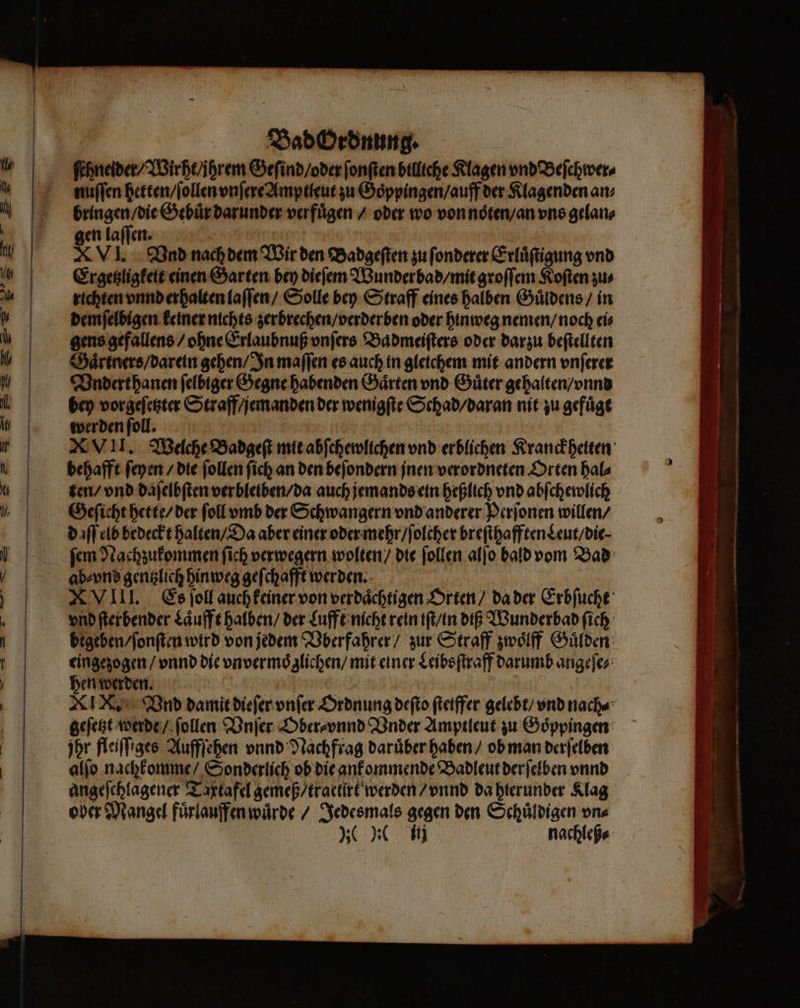 Bad Ordnung.
schneider/Wirht/jhrem Gesind/oder sonsten billiche Klagen vnd Beschwer⸗
nussen hetten/sollen vnsere Amptleut zu Göppingen/auff der Klagenden an⸗
bringen/die Gebür darunder verfügen / oder wo von nöten/an vns gelan⸗
gen lassen.
XVI. Vnd nach dem Wir den Badgesten zu sonderer Erlüstigung vnd
Ergetzligkeit einen Garten bey diesem Wunderbad/mit grossem Kosten zu⸗
richten vnnd erhalten lassen/ Solle bey Straff eines halben Güldens / in
demselbigen keiner nichts zerbrechen/verderben oder hinweg nemen/noch ei⸗
gens gefallens / ohne Erlaubnuß vnsers Badmeisters oder darzu bestellten
Gärtners/darein gehen/In massen es auch in gleichem mit andern vnserer
Vnderthanen selbiger Gegne habenden Gärten vnd Güter gehalten/vnnd
bey vorgesetzter Straff/jemanden der wenigste Schad/daran nit zu gefügt
werden soll.
XVII. Welche Badgest mit abschewlichen vnd erblichen Kranckheiten
behafft seyen / die sollen sich an den besondern jnen verordneten Orten hal⸗
ten/ vnd daselbsten verbleiben/da auch jemands ein heßlich vnd abschewlich
Gesicht hette/ der soll vmb der Schwangern vnd anderer Personen willen/
dasselb bedeckt halten/Da aber einer oder mehr/solcher bresthafften Leut/die-
sem Nachzukommen sich verwegern wolten/ die sollen also bald vom Bad
ab⸗vnd gentzlich hinweg geschafft werden.
XVIII. Es soll auch keiner von verdächtigen Orten / da der Erbsucht
vnd sterbender Läufft halben/ der Lufft nicht rein ist/in diß Wunderbad sich
begeben/sonsten wird von jedem Vberfahrer / zur Straff zwölff Gülden
eingezogen / vnnd die vnvermöglichen/ mit einer Leibsstraff darumb angese⸗
hen werden.
XIX. Vnd damit dieser vnser Ordnung desto steiffer gelebt/ vnd nach⸗
gesetzt werde/ sollen Vnser Ober⸗vnnd Vnder Amptleut zu Göppingen
jhr fleissiges Auffsehen vnnd Nachfrag darüber haben / ob man derselben
also nachkomme/ Sonderlich ob die ankommende Badleut derselben vnnd
angeschlagener Taxtafel gemeß/tractirt werden / vnnd da hierunder Klag
oder Mangel fürlauffen würde / Jedesmals gegen den Schüldigen vn⸗
):( ):( iij nachleß⸗